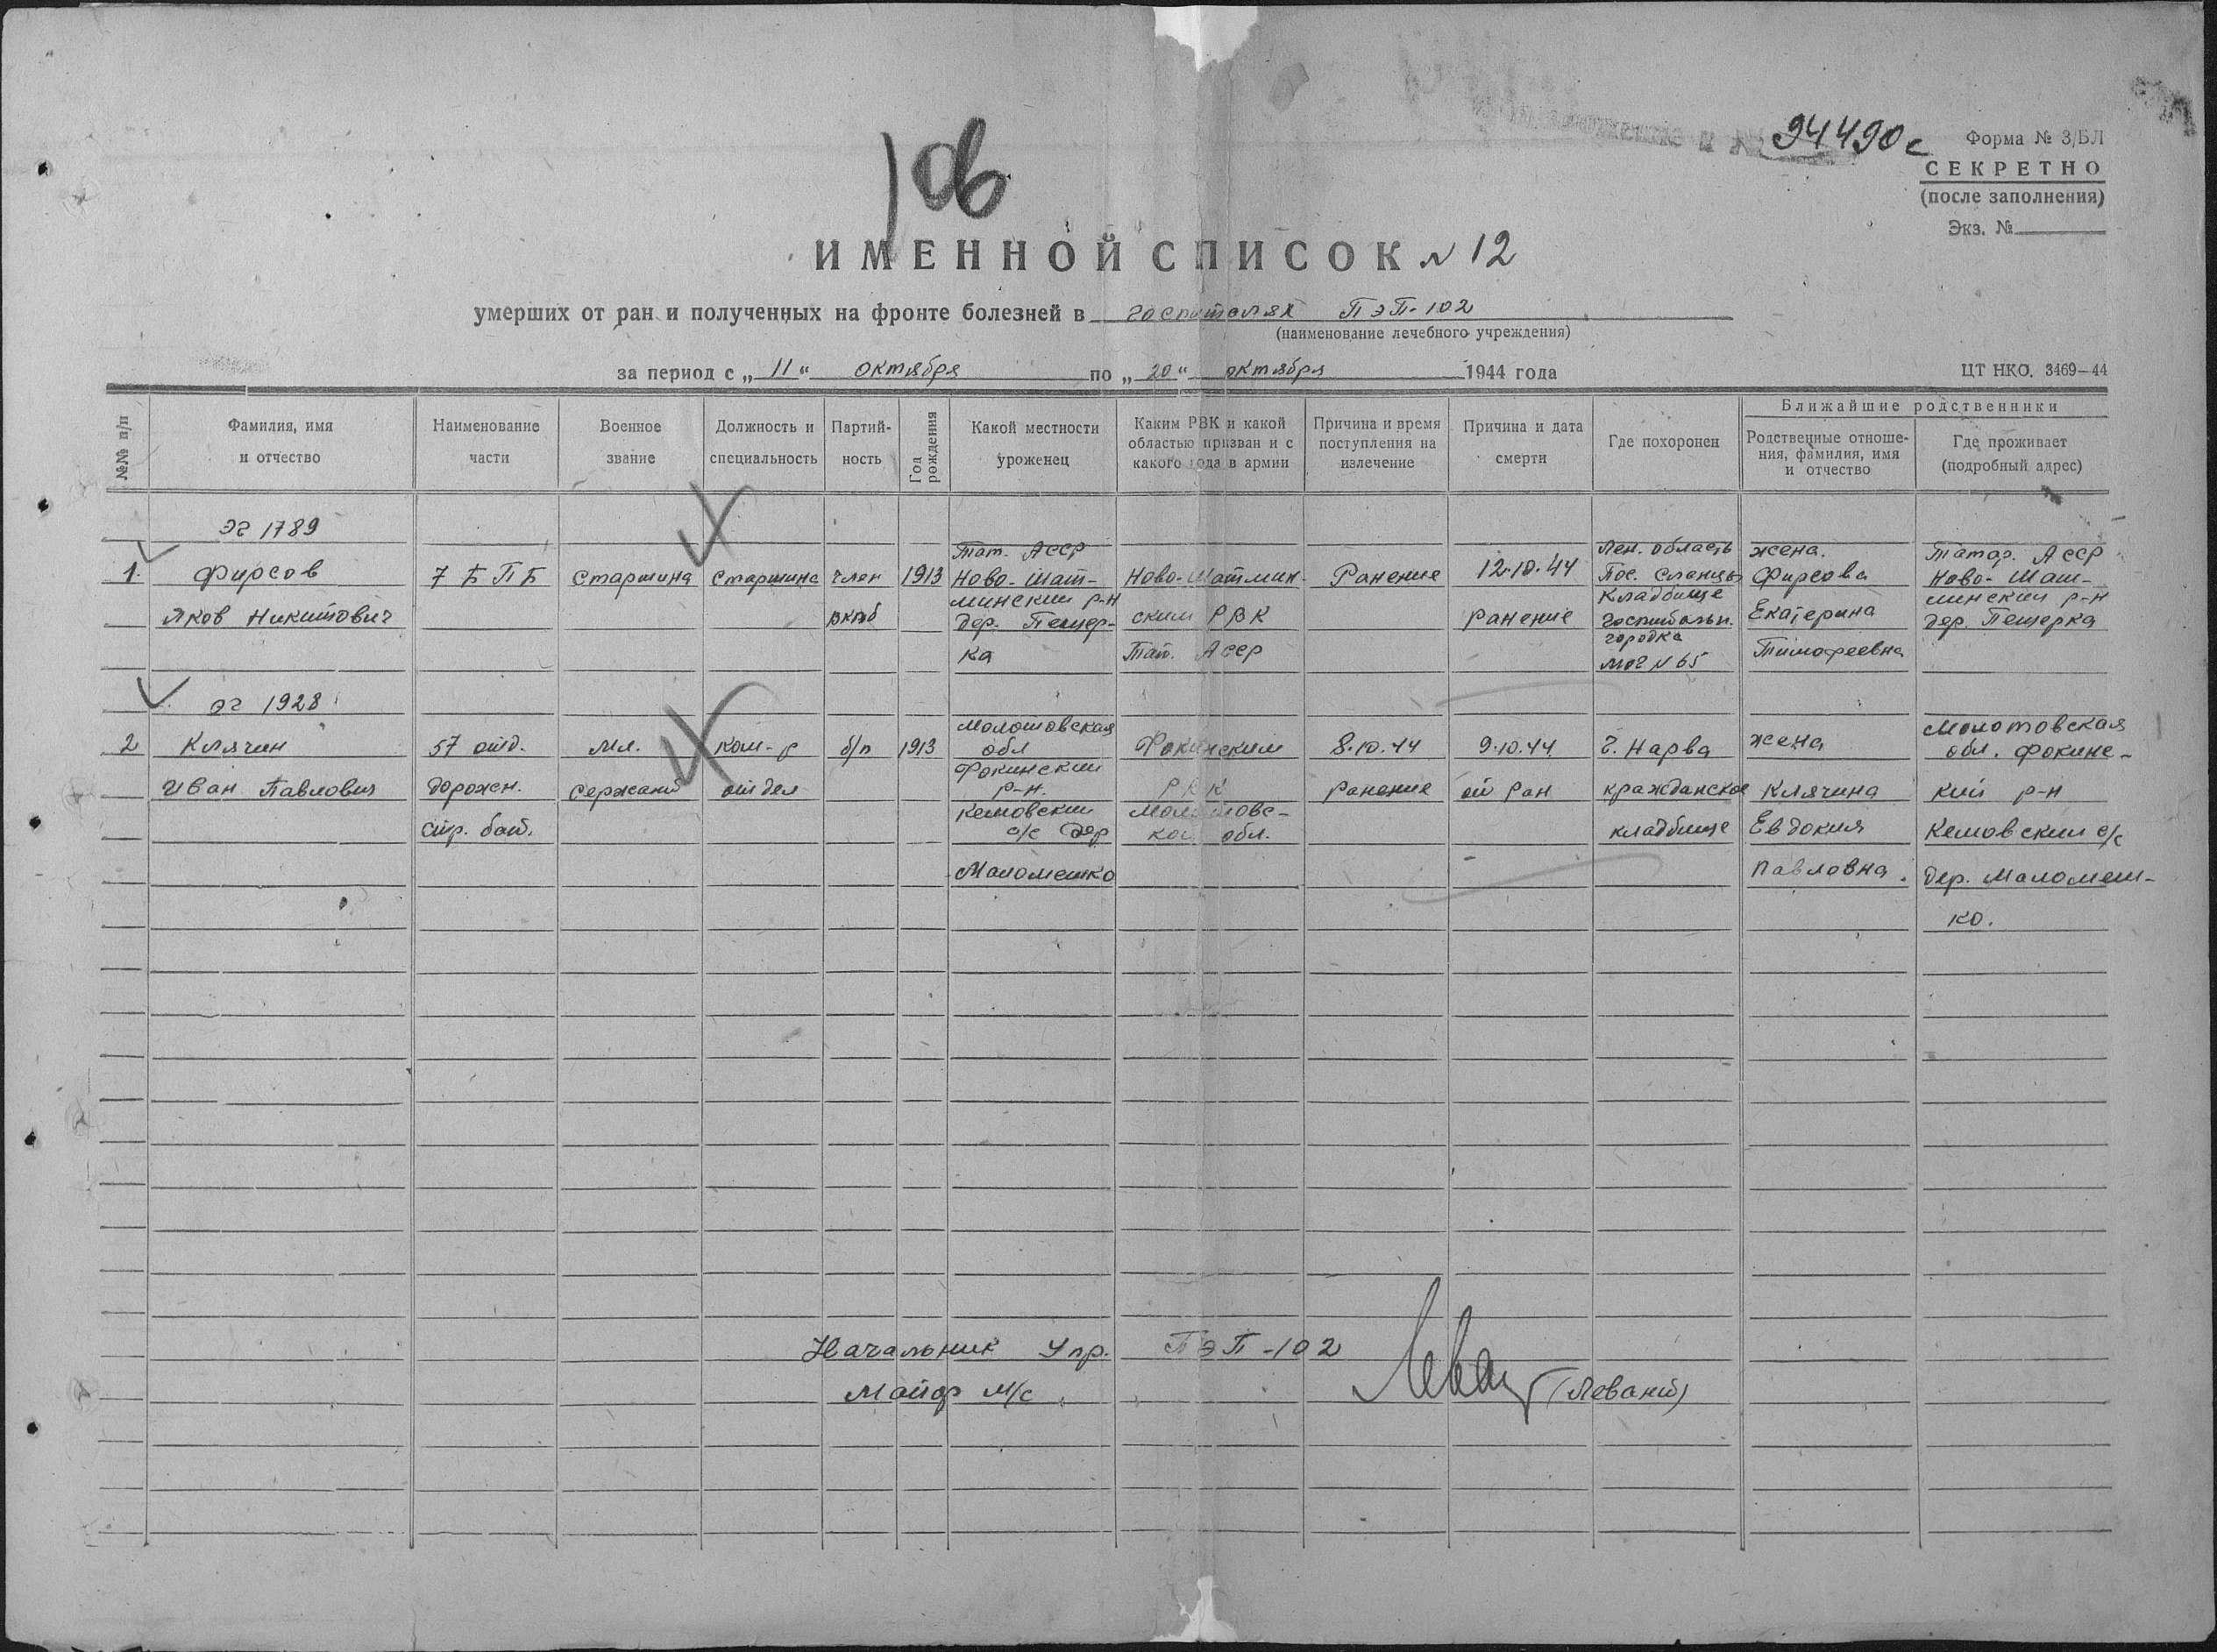 94490с
Форма № 3/БЛ
СЕКРЕТНО
(после заполнения)
Экз. №
ИМЕННОЙ СПИСОК N 12
умерших от ран и полученных на фронте болезней в госпиталях ПЭП-102
(наименование лечебного учреждения)
за период с „11“ октября по „20“ октября 1944 года
ЦТ НКО. 3469—44
№№ п/п
Фамилия, имя
и отчество
Наименование
части
Военное
звание
Должность и
специальность
Партий-
ность
Год
рождения
Какой местности
уроженец
Каким РВК и какой
областью призван и с
какого года в армии
Причина и время
поступления на
излечение
Причина и дата
смерти
Где похоронен
Ближайшие родственники
Родственные отноше-
ния, фамилия, имя
и отчество
Где проживает
(подробный адрес)
эг 1789
1.
Фирсов
Яков Никитович
7 Б П Б
Старшина
Старшина
член
вкпб
1913
Тат. АССР
Ново-Шат-
минский р-н
дер. Пещер-
ка
Ново-Шатмин-
ским РВК
Тат. АССР
Ранение
12.10.44
ранение
Лен. область
Пос. Сланцы
Кладбище
госпитальн.
городка
мог N 65
жена.
Фирсова
Екатерина
Тимофеевна
Татар. АССР
Ново-Шат-
минский р-н
дер. Пещерка
эг 1928
2
Клячин
Иван Павлович
57 отд.
дорожн.
стр. бат.
Мл.
Сержант
ком-р
отдел
б/п
1913
Молотовская
обл
Фокинский
р-н.
Кемовский
с/с дер
Маломешко
Фокинским
РВК
Молотовс-
кой обл.
8.10.44
ранение
9.10.44
от ран
г. Нарва
кражданское
кладбище
жена
Клячина
Евдокия
Павловна.
Молотовская
обл. Фокинс-
кий р-н
Кемовский с/с
дер. Маломеш-
ко.
Начальник Упр. ПЭП-102
Майор м/с
(Левант)